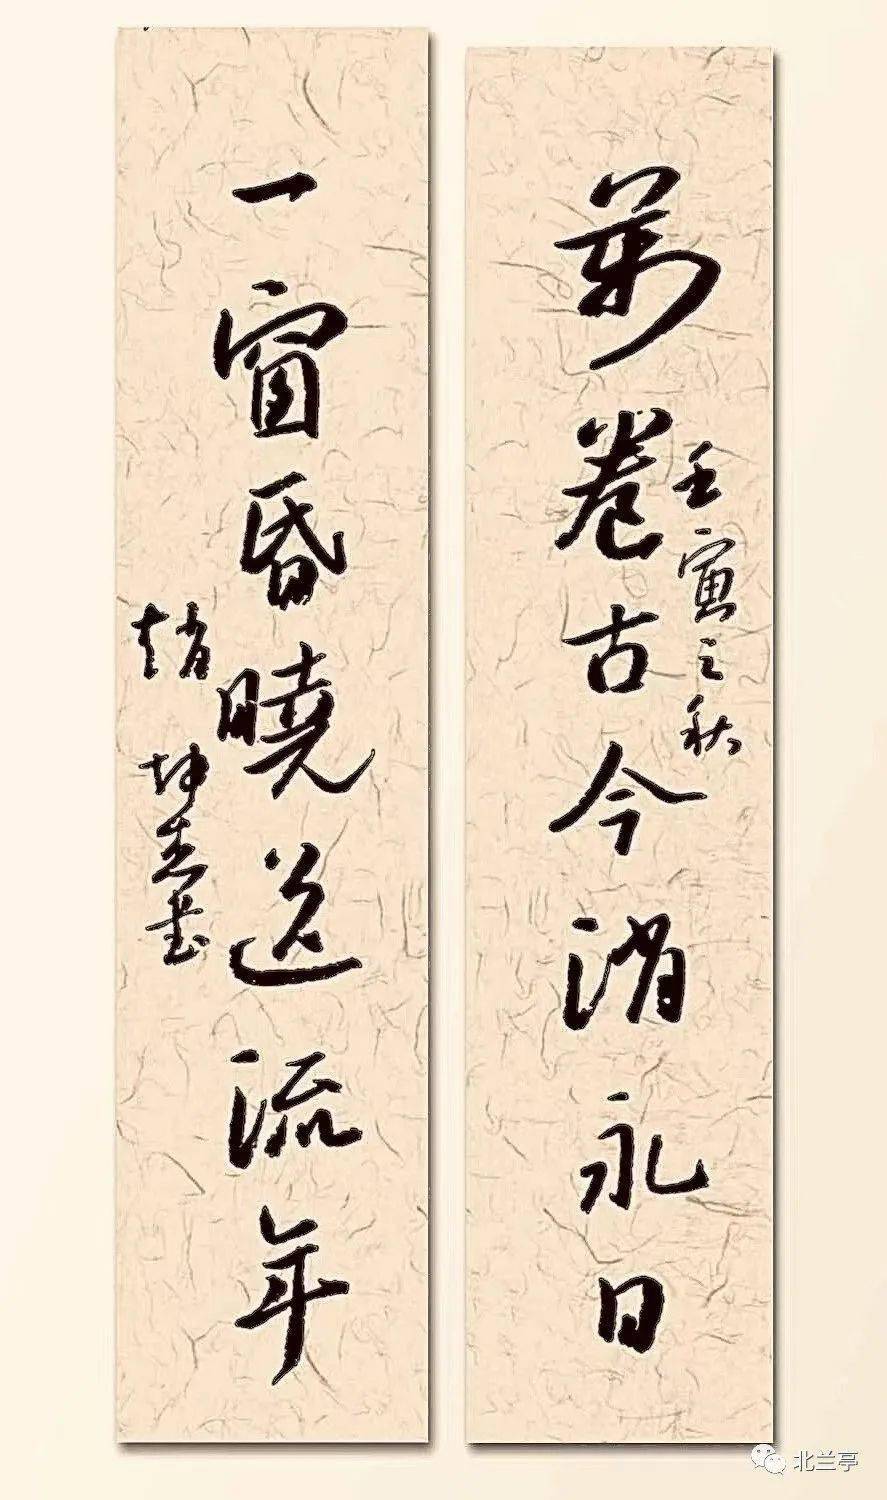 萬卷古今消永日
壬寅之秋
一窗昏曉送流年
趙坤志書
北兰亭